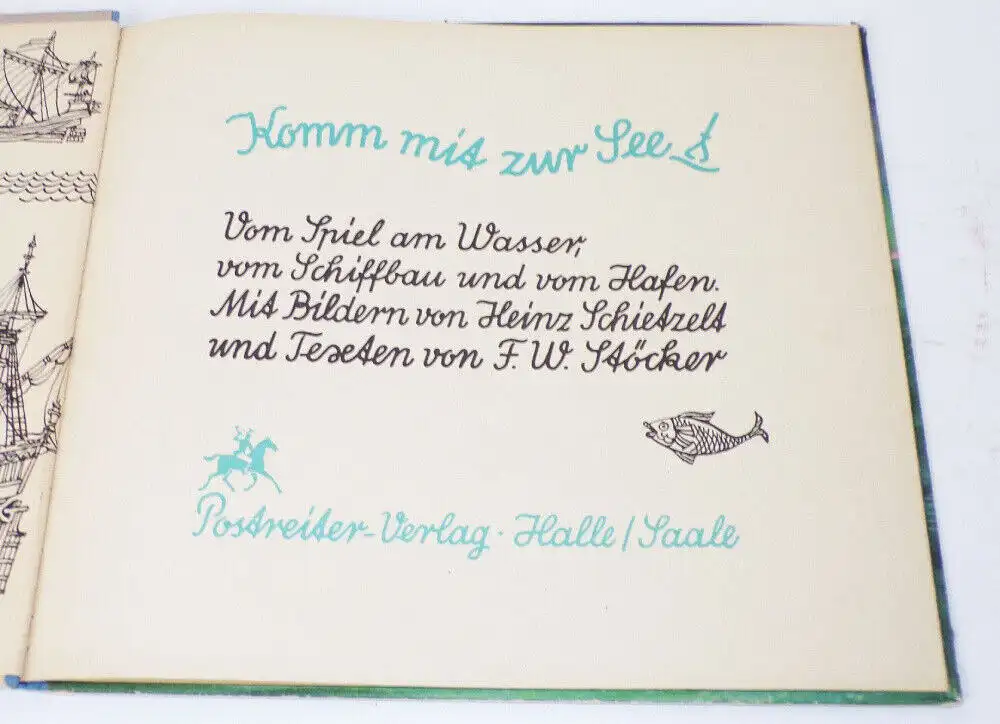 Komm mit zur See
Vom Spiel am Wasser,
vom Schiffbau und vom Hafen.
Mit Bildern von Heinz Schietzelt
und Texten von F. W. Stöcker
Postreiter-Verlag · Halle / Saale